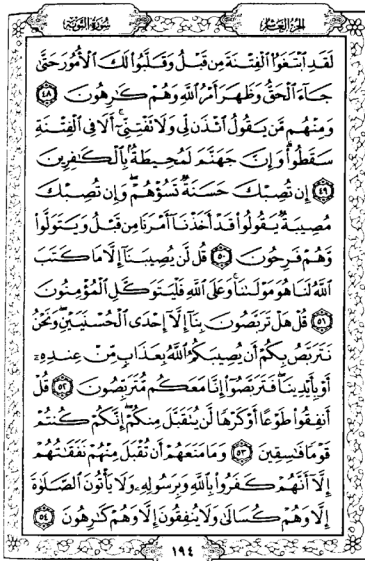 الجزء العاشر
سورة التوبة
لَقَدِ ٱبْتَغَوُا۟ ٱلْفِتْنَةَ مِن قَبْلُ وَقَلَّبُوا۟ لَكَ ٱلْأُمُورَ حَتَّىٰ
جَآءَ ٱلْحَقُّ وَظَهَرَ أَمْرُ ٱللَّهِ وَهُمْ كَٰرِهُونَ ٤٨
وَمِنْهُم مَّن يَقُولُ ٱئْذَن لِّى وَلَا تَفْتِنِّىٓ أَلَا فِى ٱلْفِتْنَةِ
سَقَطُوا۟ وَإِنَّ جَهَنَّمَ لَمُحِيطَةٌۢ بِٱلْكَٰفِرِينَ
٤٩ إِن تُصِبْكَ حَسَنَةٌ تَسُؤْهُمْ وَإِن تُصِبْكَ
مُصِيبَةٌ يَقُولُوا۟ قَدْ أَخَذْنَآ أَمْرَنَا مِن قَبْلُ وَيَتَوَلَّوا۟
وَّهُمْ فَرِحُونَ ٥٠ قُل لَّن يُصِيبَنَآ إِلَّا مَا كَتَبَ
ٱللَّهُ لَنَا هُوَ مَوْلَىٰنَا وَعَلَى ٱللَّهِ فَلْيَتَوَكَّلِ ٱلْمُؤْمِنُونَ
٥١ قُلْ هَلْ تَرَبَّصُونَ بِنَآ إِلَّآ إِحْدَى ٱلْحُسْنَيَيْنِ وَنَحْنُ
نَتَرَبَّصُ بِكُمْ أَن يُصِيبَكُمُ ٱللَّهُ بِعَذَابٍ مِّنْ عِندِهِۦٓ
أَوْ بِأَيْدِينَا فَتَرَبَّصُوٓا۟ إِنَّا مَعَكُم مُّتَرَبِّصُونَ ٥٢ قُلْ
أَنفِقُوا۟ طَوْعًا أَوْ كَرْهًا لَّن يُتَقَبَّلَ مِنكُمْ إِنَّكُمْ كُنتُمْ
قَوْمًا فَٰسِقِينَ ٥٣ وَمَا مَنَعَهُمْ أَن تُقْبَلَ مِنْهُمْ نَفَقَٰتُهُمْ
إِلَّآ أَنَّهُمْ كَفَرُوا۟ بِٱللَّهِ وَبِرَسُولِهِۦ وَلَا يَأْتُونَ ٱلصَّلَوٰةَ
إِلَّا وَهُمْ كُسَالَىٰ وَلَا يُنفِقُونَ إِلَّا وَهُمْ كَٰرِهُونَ ٥٤
١٩٤